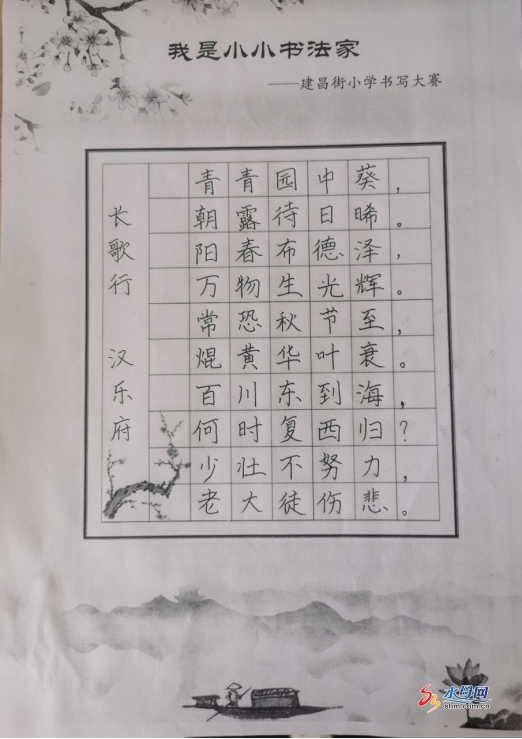 我是小小书法家
——建昌街小学书写大赛
长歌行 汉乐府
青青园中葵,
朝露待日晞。
阳春布德泽,
万物生光辉。
常恐秋节至,
焜黄华叶衰。
百川东到海,
何时复西归?
少壮不努力,
老大徒伤悲。
水母网
shm.com.cn